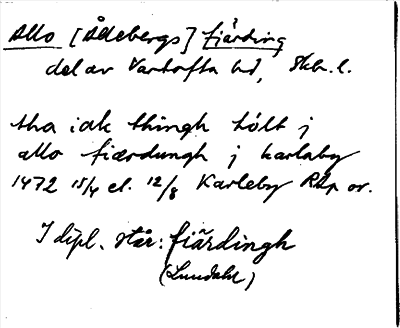 Allo [Ållebergs] fjärding
del av Vartofta hd, Skbr. l.
tha iak thingh hôlt j
allo fiærdungh j karlaby
1472 15/4 el. 12/8 Karleby RAp or.
I dipl. står: fiärdingh
(Lundahl)